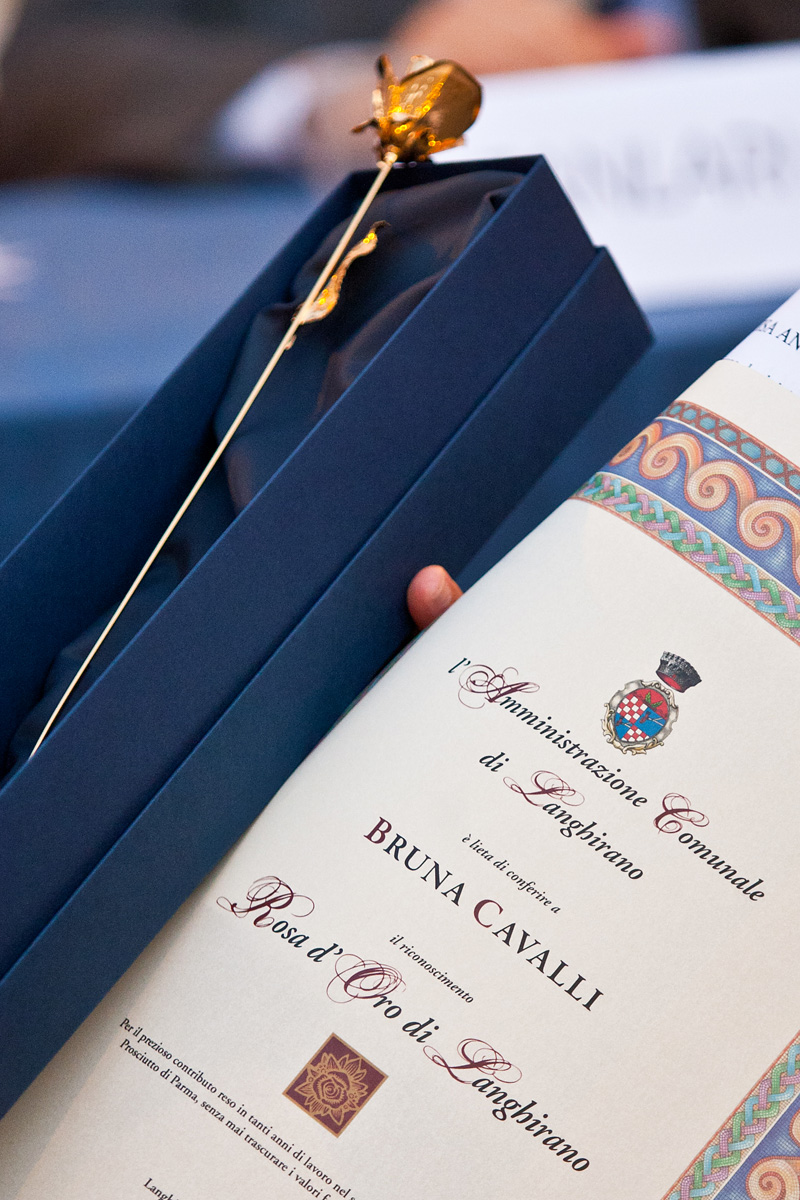 l'Amministrazione Comunale
di Langhirano
è lieta di conferire a
BRUNA CAVALLI
il riconoscimento
Rosa d'Oro di Langhirano
Per il prezioso contributo reso in tanti anni di lavoro nel
Prosciutto di Parma, senza mai trascurare i valori